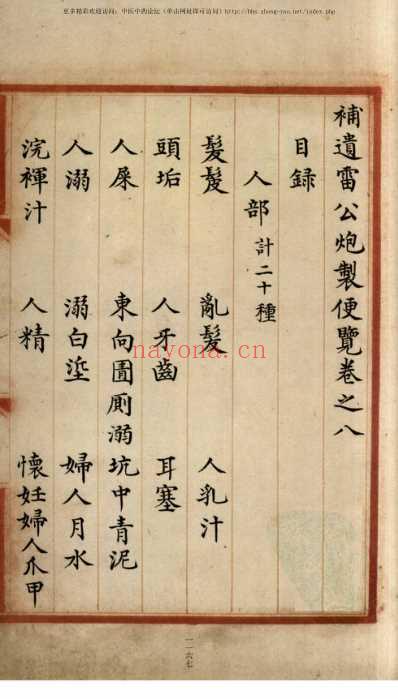 更多精彩欢迎访问：中医中药论坛(单击网址即可访问)http://bbs.zhong-yao.net/index.php
補遺雷公炮製便覽卷之八
目録
人部 計二十種
髮髲 亂髮 人乳汁
頭垢 人牙齒 耳塞
人屎 東向圊厠溺坑中青泥
人溺 溺白垽 婦人月水
浣裈汁 人精 懷妊婦人爪甲
nayona.cn
一一六七